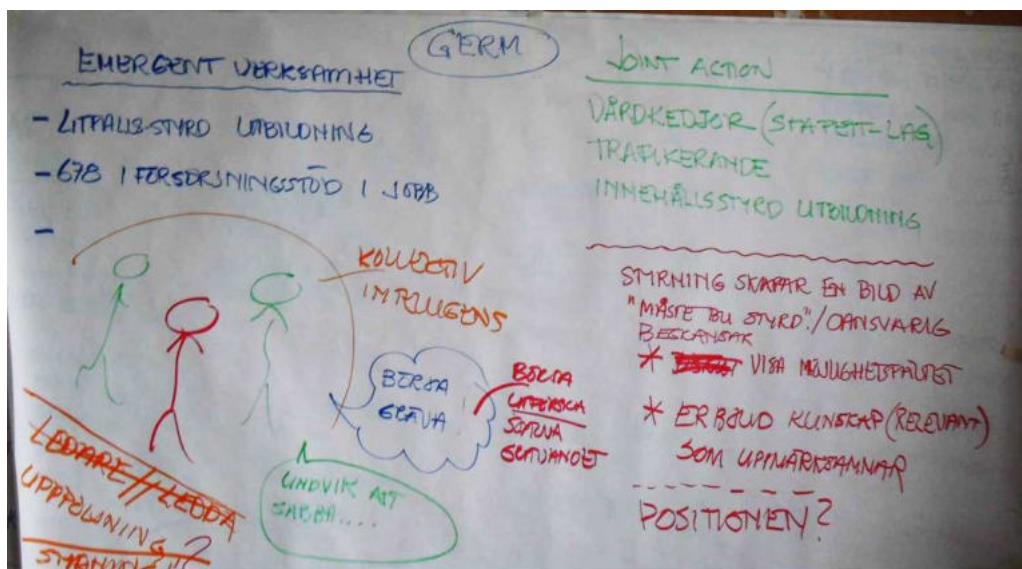 GERM
EMERGENT VERKSAMHET
- UTFALLS-STYRD UTBILDNING
- 678 I FÖRSÖRJNINGSSTÖD I JOBB
-
KOLLEKTIV
INTELLIGENS
BÖRJA
GRÄVA
BÖRJA
UTFORSKA
UNDVIK ATT
SABBA....
LEDARE // LEDDA
UPPFÖLJNING?
JOINT ACTION
VÅRDKEDJOR (STAFETT-LAG)
TRAFIKERANDE
INNEHÅLLSSTYRD UTBILDNING
STYRNING SKAPAR EN BILD AV
"MÅSTE BLI STYRD"/OANSVARIG
* VISA MÖJLIGHETSFÄLTET
* ERBJUD KUNSKAP (RELEVANT)
SOM UPPMÄRKSAMMAR
POSITIONEN?